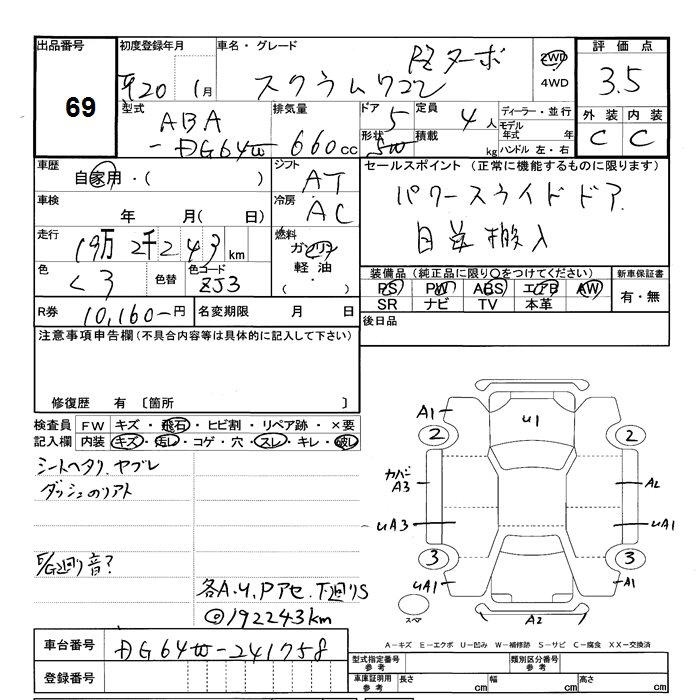 出品番号
69
初度登録年月
H20 1月
車名・グレード
PZターボ
スクラムワゴン
2WD
4WD
評価点
3.5
外装 内装
C C
型式
ABA
-DG64W
排気量
660cc
ドア
5
形状
5W
定員
4人
積載
kg
ディーラー・並行
モデル年式 年
ハンドル 左・右
車歴
自家用・( )
シフト
AT
車検
年 月( 日)
冷房
AC
走行
19万2千243km
燃料
ガソリン
軽油
・( )
色
クロ
色替
色コード
ZJ3
R券
10,160-円
名変期限 月 日
セールスポイント(正常に機能するものに限ります)
パワースライドドア
自差搬入
装備品(純正品に限り○をつけてください)
PS PW ABS エアB AW
SR ナビ TV 本革
新車保証書
有・無
後日品
注意事項申告欄(不具合内容等は具体的に記入して下さい)
修復歴 有 〔箇所 〕
検査員記入欄
FW キズ・飛石・ヒビ割・リペア跡・×要
内装 キズ・汚レ・コゲ・穴・スレ・キレ・破レ
シートヘタリ、ヤブレ
ダッシュのリアト
E/G廻り音?
各A.U.Pアセ.下廻りS
◎192243km
A1
U1
2
2
カバー
A3
A2
UA3
UA1
3
3
UA1
A1
スペア
A2
A-キズ E-エクボ U-凹み W-補修跡 S-サビ C-腐食 XX-交換済
車台番号
DG64W-241758
登録番号
型式指定番号
参考
類別区分番号
参考
車庫証明用
参考
長さ cm
幅 cm
高さ cm